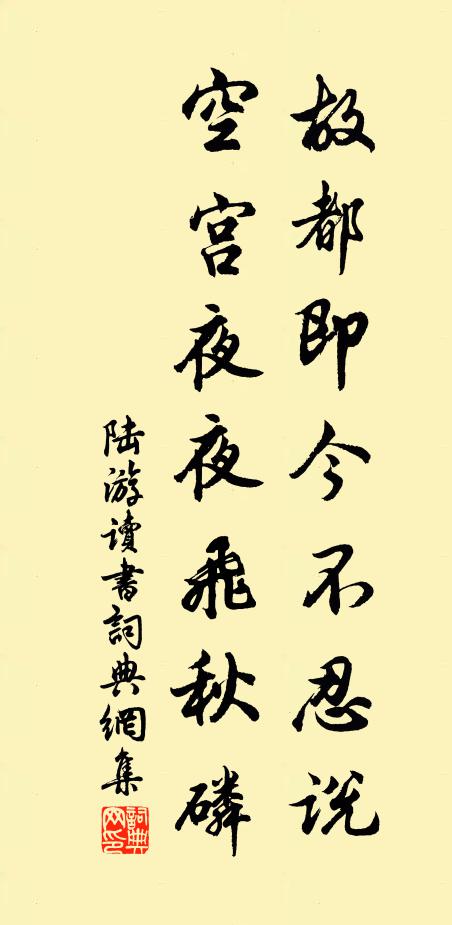 故都即今不忍说
空宫夜夜飛秋磷
陆游讀書詞典網集
詞典網印